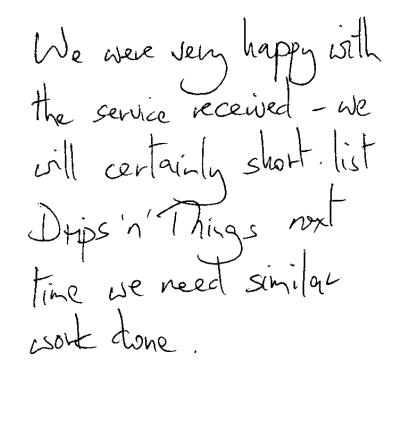 We were very happy with
the service received - we
will certainly short.list
Drips 'n' Things next
time we need similar
work done.